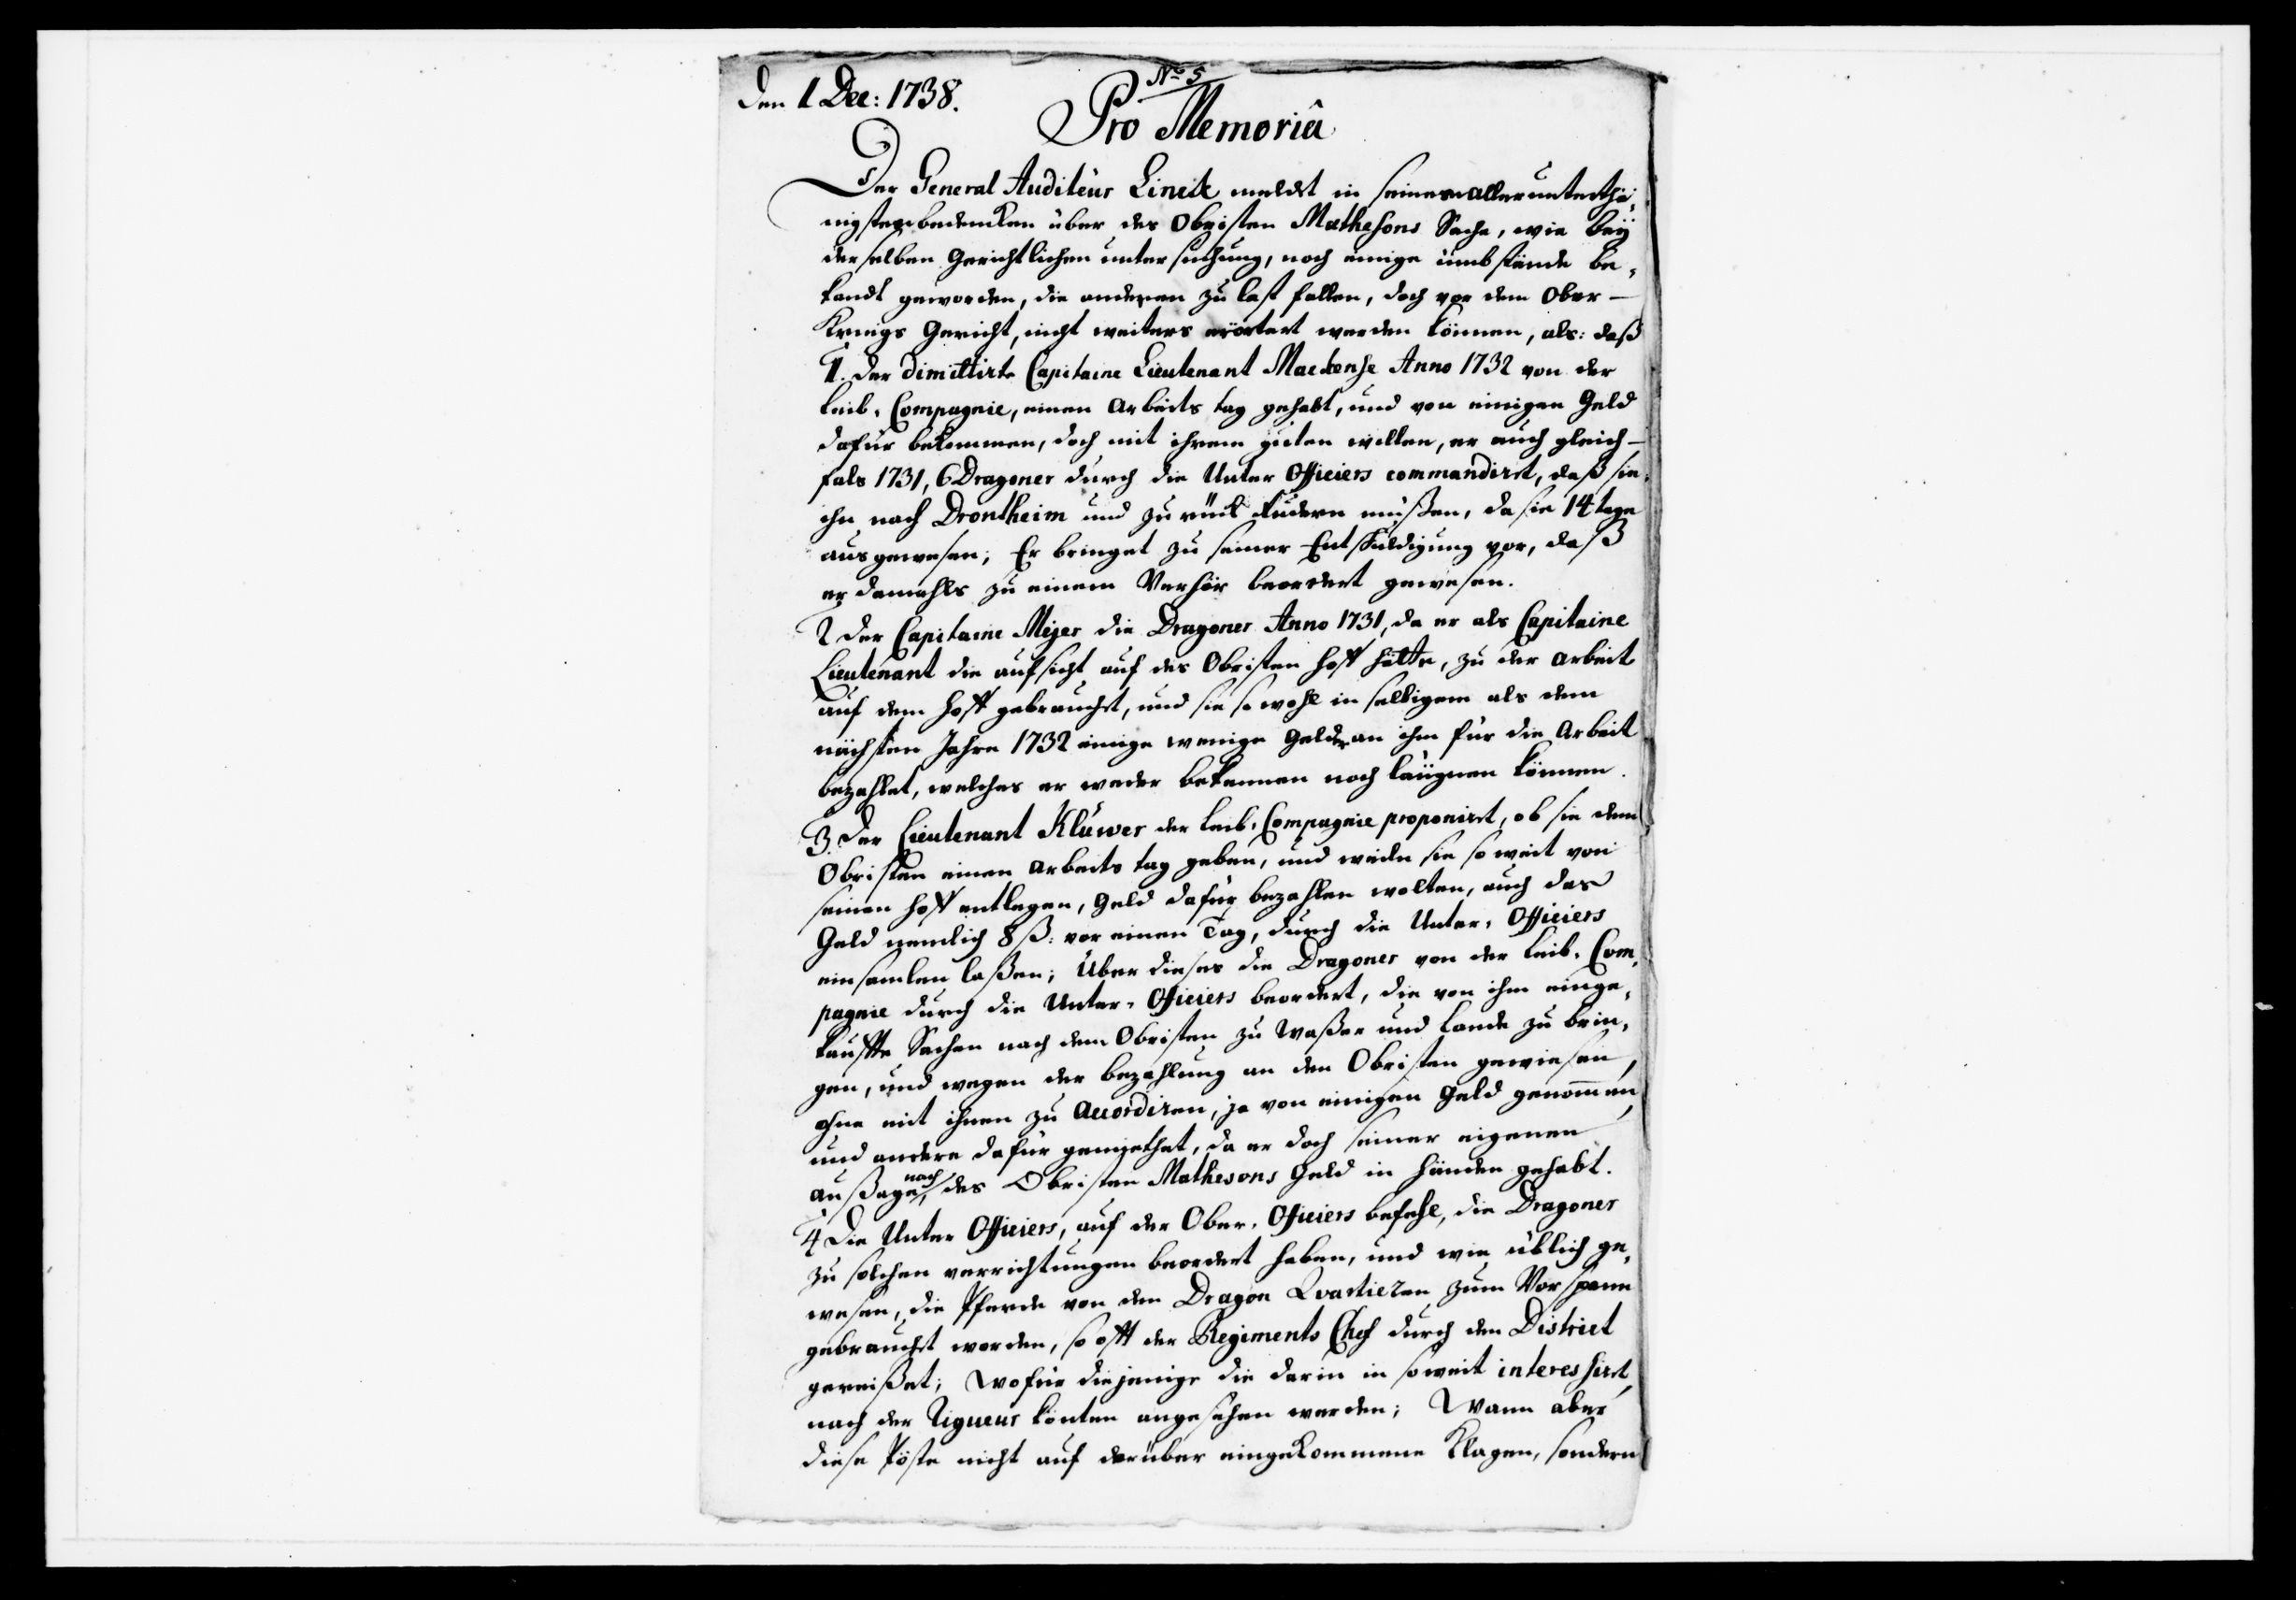 Den 1 Dec: 1738.
No 5
Pro Memoriâ
Der General Auditeur Linck meldet in seinem allerunterthä-
nigsten bedencken über des Obristen Mathesons Sache, wie beÿ
derselben Gerichtlichen untersuchung, noch einige umbstände be-
kandt geworden, die anderen zu last fallen, doch vor dem Ober-
Kriegs Gericht, nicht weiters erörtert werden können, als: daß
1. der dimittirte Capitaine Lieutenant Mackense Anno 1732 von der
Leib-Compagnie, einen Arbeits tag gehabt, und von einigen Geld
dafür bekommen, doch mit ihrem guten willen, er auch gleich-
fals 1731, 6 Dragoner durch die Unter Officiers commandirt, daß sie
ihn nach Drontheim und zurück Rudern müßen, da sie 14 tage
aus gewesen; Er bringet zu seiner Entschuldigung vor, daß
er damahls zu einem Verhör beordert gewesen.
2 der Capitaine Mejer die Dragoner Anno 1731, da er als Capitaine
Lieutenant die aufsicht auf des Obristen Hoff hätte, zu der arbeit
auf dem Hoff gebraucht, und sie sowohl in selbigem als dem
nächsten Jahre 1732 einige wenige Gelder an ihm für die Arbeit
bezahlet, welches er weder bekennen noch läügnen können.
3. der Lieutenant Klüwer der Leib-Compagnie proponirt, ob sie dem
Obristen einen Arbeits tag geben, und weile sie so weit von
seinen Hoff entlegen, Geld dafür bezahlen wolten, auch das
Geld nemlich 8 ß: vor einen Tag, durch die Unter-Officiers
einsamlen laßen; Über dieses die Dragoner von der Leib-Com-
pagnie durch die Unter-Officiers beordert, die von ihm einge-
kauffte Sachen nach dem Obristen zu Waßer und Lande zu brin-
gen, und wegen der bezahlung an den Obristen gewiesen,
ohne mit ihnen zu accordiren, ja von einigen Geld genommen,
und andere dafür gemiethet, da er doch seiner eigenen
außage nach, des Obristen Mathesons Geld in Händen gehabt.
4 die Unter Officiers, auf der Ober-Officiers befehl, die Dragoner
zu solchen verrichtungen beordert haben, und wie üblich ge-
wesen, die Pferde von den Dragon Qvartieren zum Vorspann
gebraucht worden, so offt der Regiments Chef durch den District
gereißet; Wofür diejenige die darin in soweit interessirt,
nach der Rigueur könten angesehen werden; Wann aber
diese Pöste nicht auf darüber eingekommene Klagen, sondern